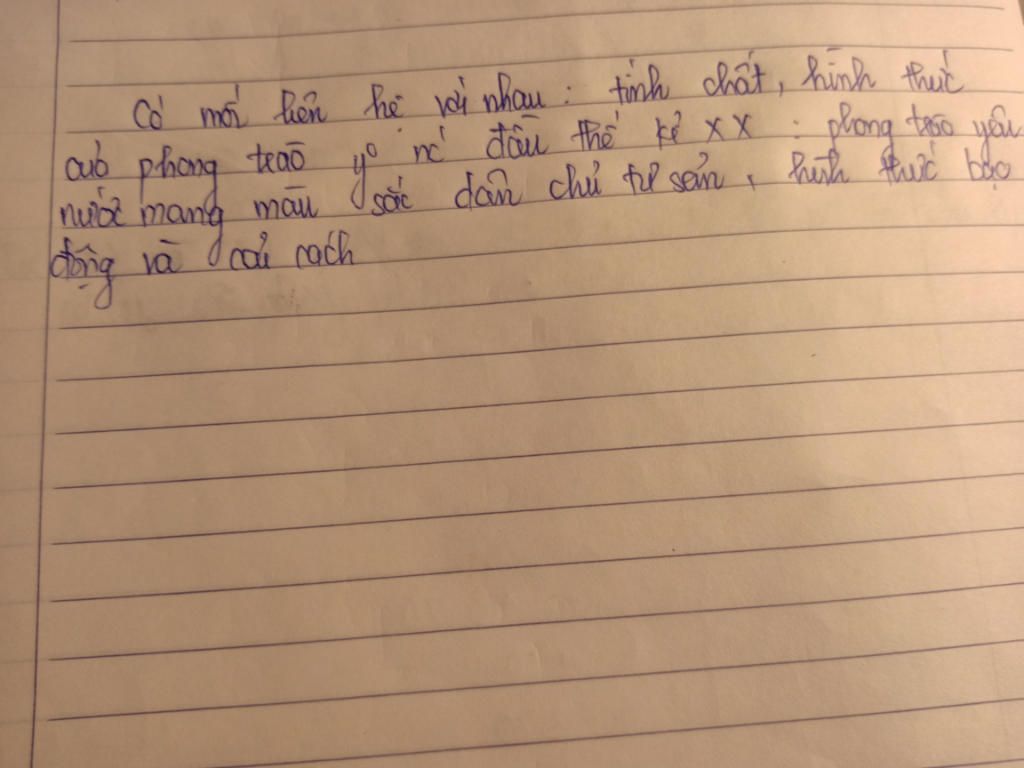 Có mối liên hệ với nhau : tính chất, hình thức
của phong trào yo nc đầu thế kỉ XX : phong trào yêu
nước mang màu sắc dân chủ tư sản, hình thức bạo
động và cải cách